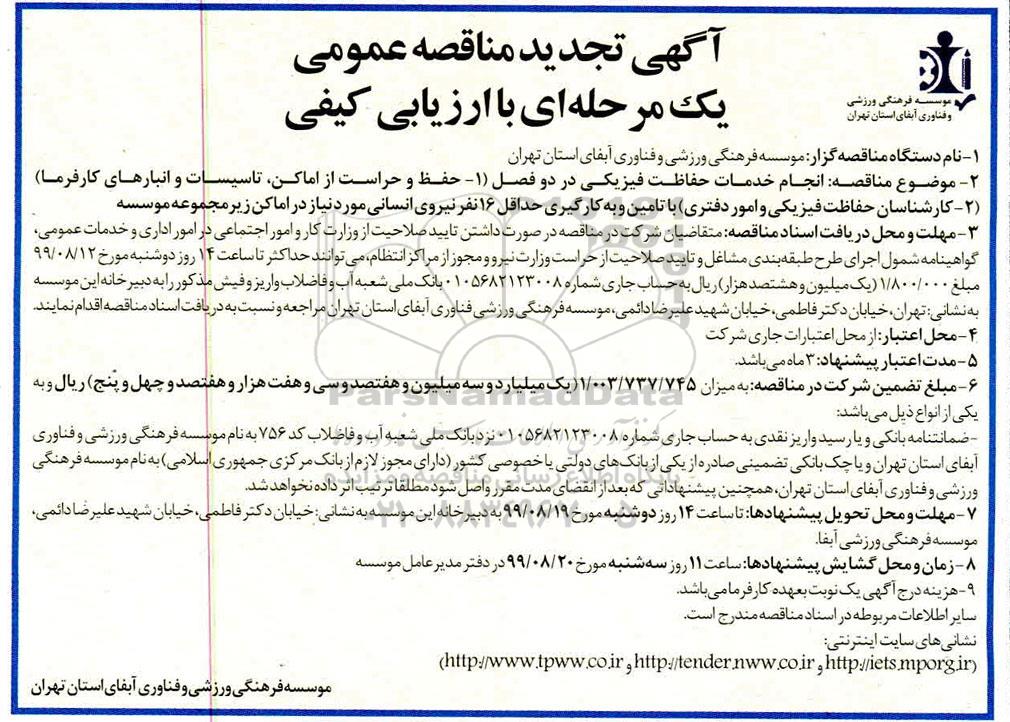 آگهی تجدید مناقصه عمومی
یک مرحله‌ای با ارزیابی کیفی
موسسه فرهنگی ورزشی
و فناوری آبفای استان تهران
۱- نام دستگاه مناقصه گزار: موسسه فرهنگی ورزشی و فناوری آبفای استان تهران
۲- موضوع مناقصه: انجام خدمات حفاظت فیزیکی در دو فصل (۱- حفظ و حراست از اماکن، تاسیسات و انبارهای کارفرما)
(۲- کارشناسان حفاظت فیزیکی و امور دفتری) با تامین و به کارگیری حداقل ۱۶ نفر نیروی انسانی مورد نیاز در اماکن زیر مجموعه موسسه
۳- مهلت و محل دریافت اسناد مناقصه: متقاضیان شرکت در مناقصه در صورت داشتن تایید صلاحیت از وزارت کار و امور اجتماعی در امور اداری و خدمات عمومی،
گواهینامه شمول اجرای طرح طبقه‌بندی مشاغل و تایید صلاحیت از حراست وزارت نیرو و مجوز از مراکز انتظام، می‌توانند حداکثر تا ساعت ۱۴ روز دوشنبه مورخ ۹۹/۰۸/۱۲
مبلغ ۱/۸۰۰/۰۰۰ (یک میلیون و هشتصد هزار) ریال به حساب جاری شماره ۰۱۰۵۶۸۲۱۲۳۰۰۸ بانک ملی شعبه آب و فاضلاب واریز و فیش مذکور را به دبیرخانه این موسسه
به نشانی: تهران، خیابان دکتر فاطمی، خیابان شهید علیرضا دائمی، موسسه فرهنگی ورزشی فناوری آبفای استان تهران مراجعه و نسبت به دریافت اسناد مناقصه اقدام نمایند.
۴- محل اعتبار: از محل اعتبارات جاری شرکت
۵- مدت اعتبار پیشنهاد: ۳ ماه می‌باشد.
۶- مبلغ تضمین شرکت در مناقصه: به میزان ۱/۰۰۳/۷۳۷/۷۴۵ (یک میلیارد و سه میلیون و هفتصد و سی و هفت هزار و هفتصد و چهل و پنج) ریال و به
یکی از انواع ذیل می‌باشد:
-ضمانتنامه بانکی و یا رسید واریز نقدی به حساب جاری شماره ۰۱۰۵۶۸۲۱۲۳۰۰۸ نزد بانک ملی شعبه آب و فاضلاب کد ۷۵۶ به نام موسسه فرهنگی ورزشی و فناوری
آبفای استان تهران و یا چک بانکی تضمینی صادره از یکی از بانک‌های دولتی یا خصوصی کشور (دارای مجوز لازم از بانک مرکزی جمهوری اسلامی) به نام موسسه فرهنگی
ورزشی و فناوری آبفای استان تهران، همچنین پیشنهاداتی که بعد از انقضای مدت مقرر واصل شود مطلقا ترتیب اثر داده نخواهد شد.
۷- مهلت و محل تحویل پیشنهادها: تا ساعت ۱۴ روز دوشنبه مورخ ۹۹/۰۸/۱۹ به دبیرخانه این موسسه به نشانی: خیابان دکتر فاطمی، خیابان شهید علیرضا دائمی،
موسسه فرهنگی ورزشی آبفا.
۸- زمان و محل گشایش پیشنهادها: ساعت ۱۱ روز سه شنبه مورخ ۹۹/۰۸/۲۰ در دفتر مدیر عامل موسسه
۹- هزینه درج آگهی یک نوبت بعهده کارفرما می‌باشد.
سایر اطلاعات مربوطه در اسناد مناقصه مندرج است.
نشانی‌های سایت اینترنتی:
(http://iets.mporg.ir و http://tender.nww.co.ir و http://www.tpww.co.ir)
موسسه فرهنگی ورزشی و فناوری آبفای استان تهران
ParsNamadData